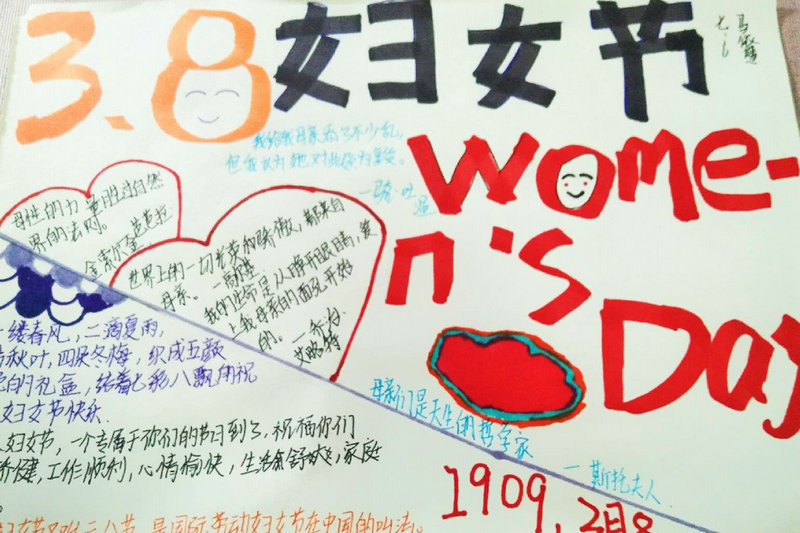 3.8妇女节
七.6
我给我母亲添了不少乱,
但我认为她对此颇为享受。
—马克·吐温
Women-
n's
Day
母性的力量胜过自然
界的法则。
金索尔·芭芭拉
世界上的一切光荣和骄傲,都来自
母亲。—高尔基
我的生命是从睁开眼睛,爱
上我母亲的面孔开始
的。—乔治
艾略特
一缕春风,二滴夏雨,
秋叶,四朵冬梅,织成五颜
的礼盒,结着七彩八飘的祝
妇女节快乐.
妇女节,一个专属于你们的节日到了.祝福你们
健,工作顺利,心情愉快,生活舒爽,家庭
母亲们是天生的哲学家
—斯托夫人.
1909,2月8
妇女节又叫三八节,是国际劳动妇女节在中国的叫法。